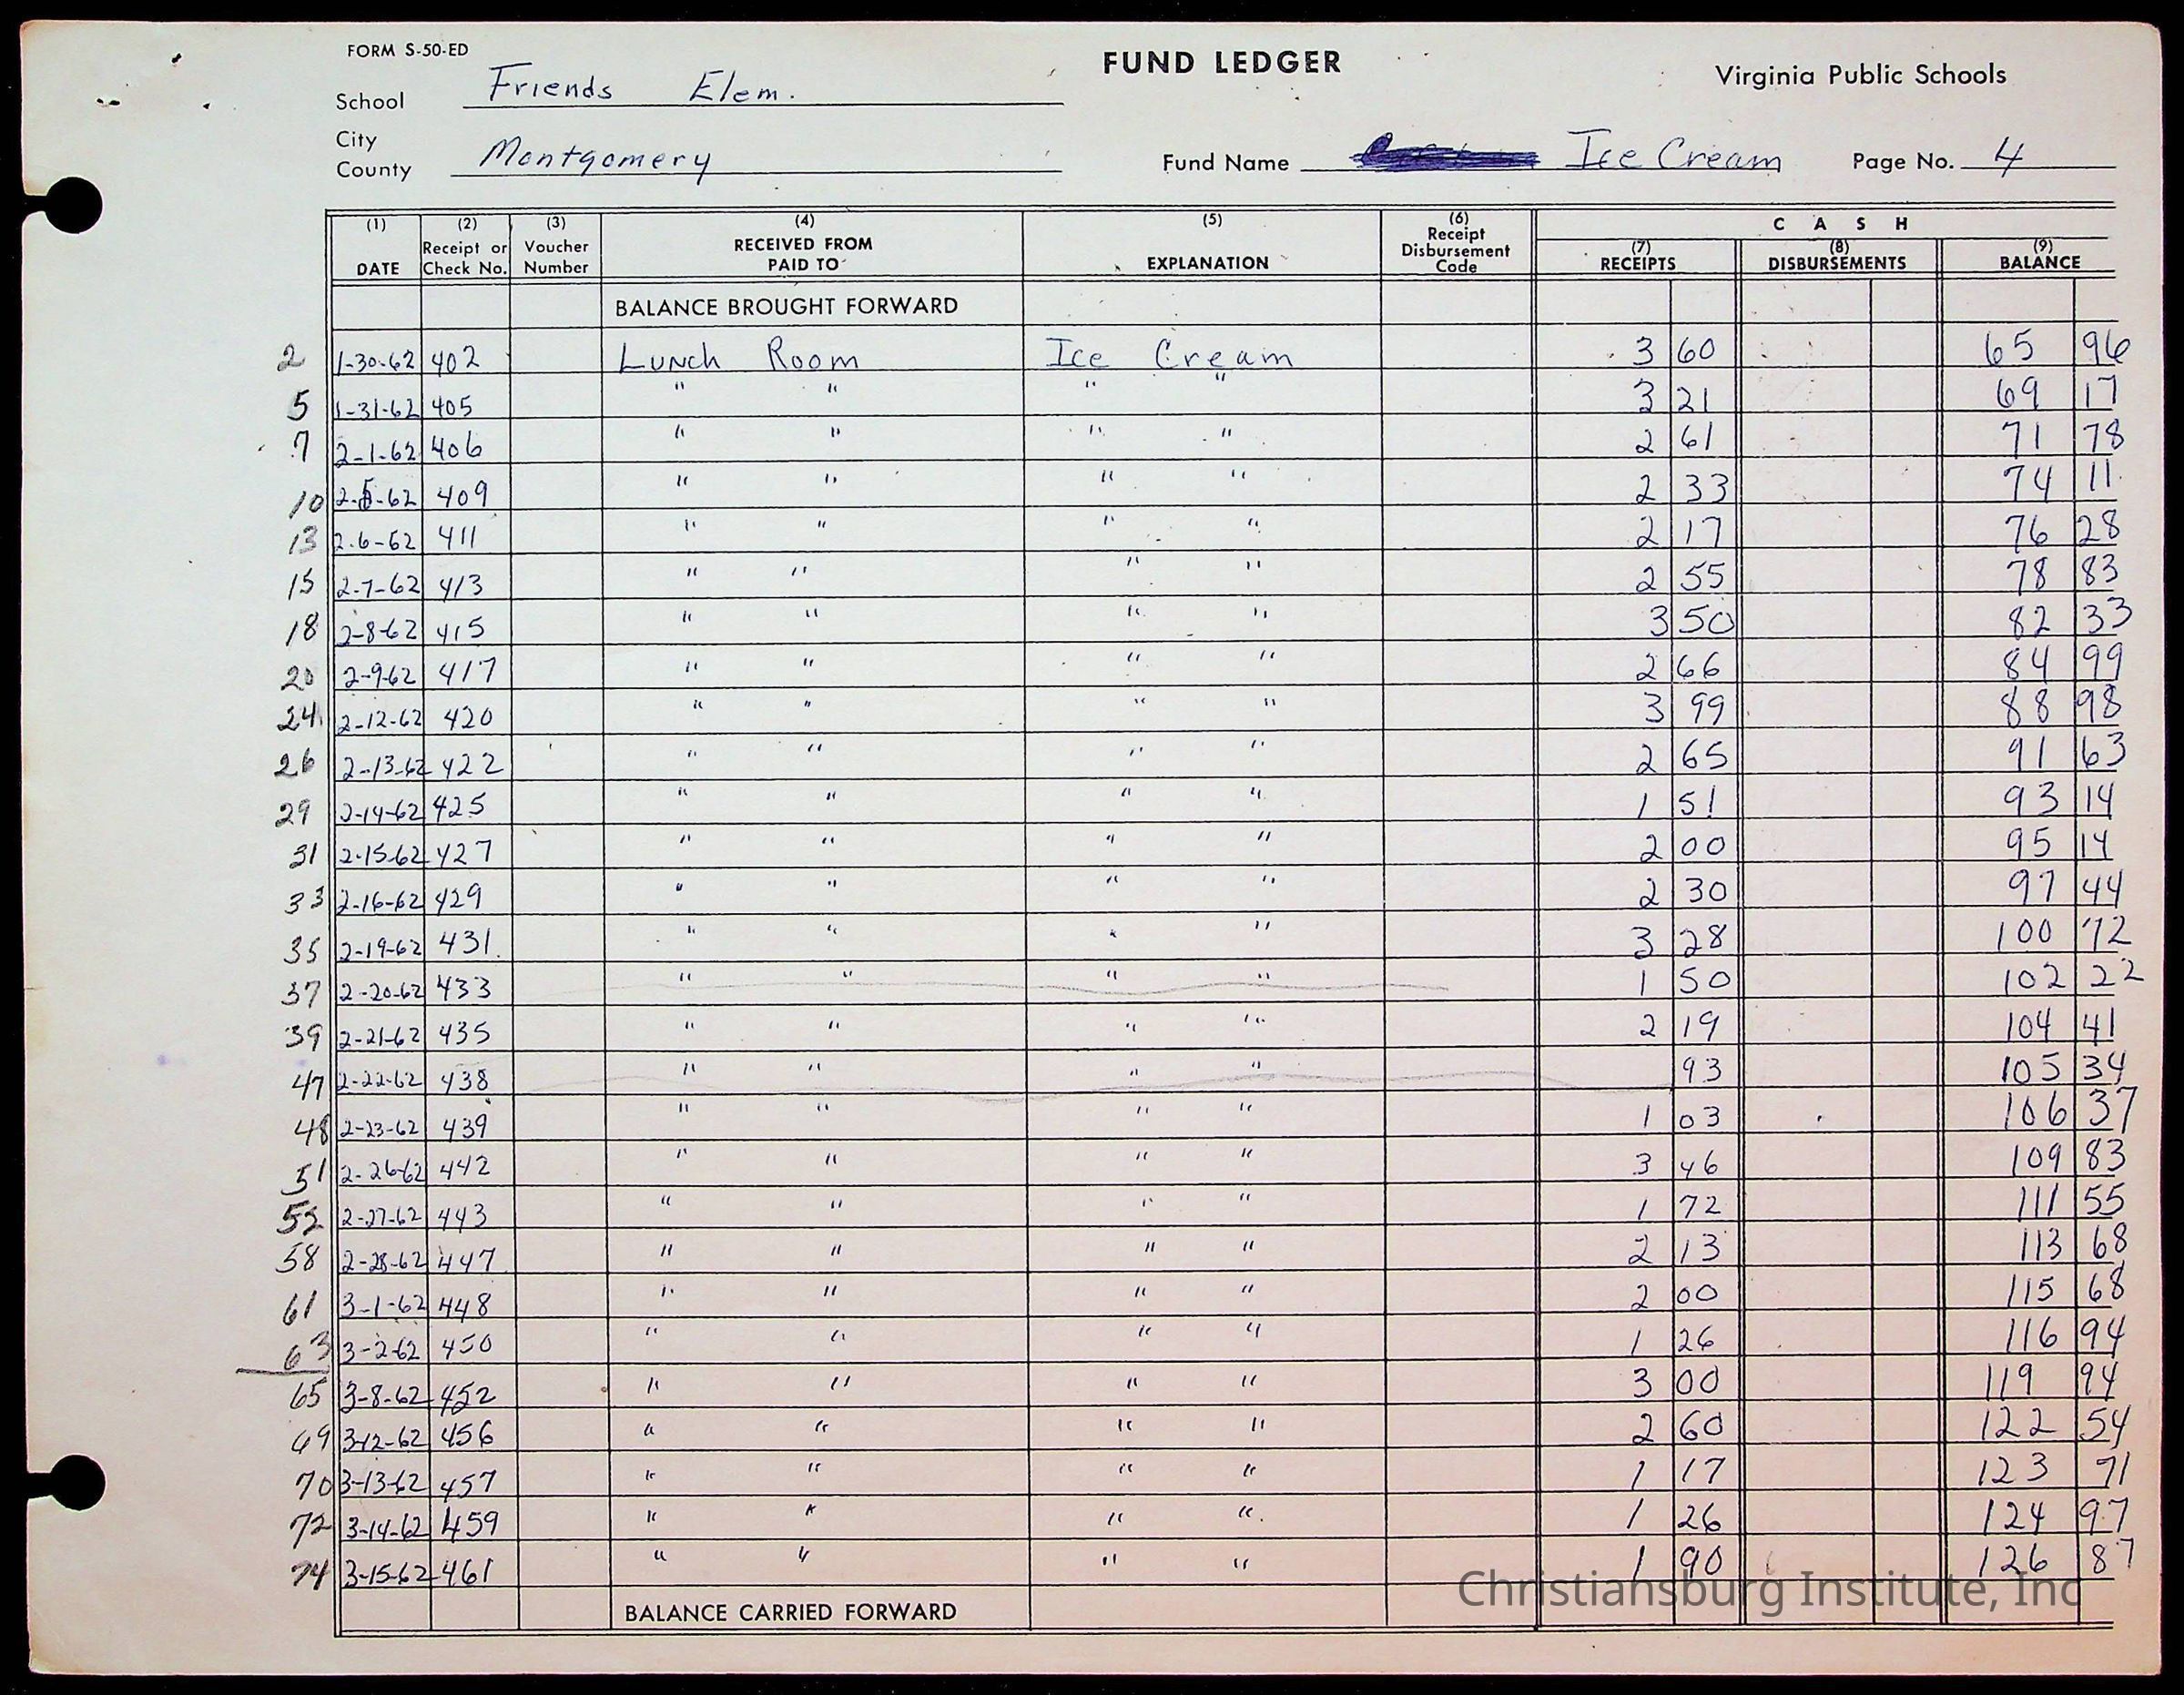 FORM S-50-ED
FUND LEDGER
Virginia Public Schools
School Friends Elem.
City
County Montgomery
Fund Name Ice Cream Page No. 4
(1) (2) (3) (4) (5) (6) C A S H
DATE Receipt or Check No. Voucher Number RECEIVED FROM PAID TO EXPLANATION Receipt Disbursement Code (7) RECEIPTS (8) DISBURSEMENTS (9) BALANCE
BALANCE BROUGHT FORWARD
2 1-30-62 402 Lunch Room Ice Cream 3 60 65 96
5 1-31-62 405 " " " " 3 21 69 17
7 2-1-62 406 " " " " 2 61 71 78
10 2-5-62 409 " " " " 2 33 74 11
13 2-6-62 411 " " " " 2 17 76 28
15 2-7-62 413 " " " " 2 55 78 83
18 2-8-62 415 " " " " 3 50 82 33
20 2-9-62 417 " " " " 2 66 84 99
24 2-12-62 420 " " " " 3 99 88 98
26 2-13-62 422 " " " " 2 65 91 63
29 2-14-62 425 " " " " 1 51 93 14
31 2-15-62 427 " " " " 2 00 95 14
33 2-16-62 429 " " " " 2 30 97 44
35 2-19-62 431 " " " " 3 28 100 72
37 2-20-62 433 " " " " 1 50 102 22
39 2-21-62 435 " " " " 2 19 104 41
47 2-22-62 438 " " " " 93 105 34
48 2-23-62 439 " " " " 1 03 106 37
51 2-26-62 442 " " " " 3 46 109 83
52 2-27-62 443 " " " " 1 72 111 55
58 2-28-62 447 " " " " 2 13 113 68
61 3-1-62 448 " " " " 2 00 115 68
63 3-2-62 450 " " " " 1 26 116 94
65 3-8-62 452 " " " " 3 00 119 94
69 3-12-62 456 " " " " 2 60 122 54
70 3-13-62 457 " " " " 1 17 123 71
72 3-14-62 459 " " " " 1 26 124 97
74 3-15-62 461 " " " " 1 90 126 87
Christiansburg Institute, Inc
BALANCE CARRIED FORWARD